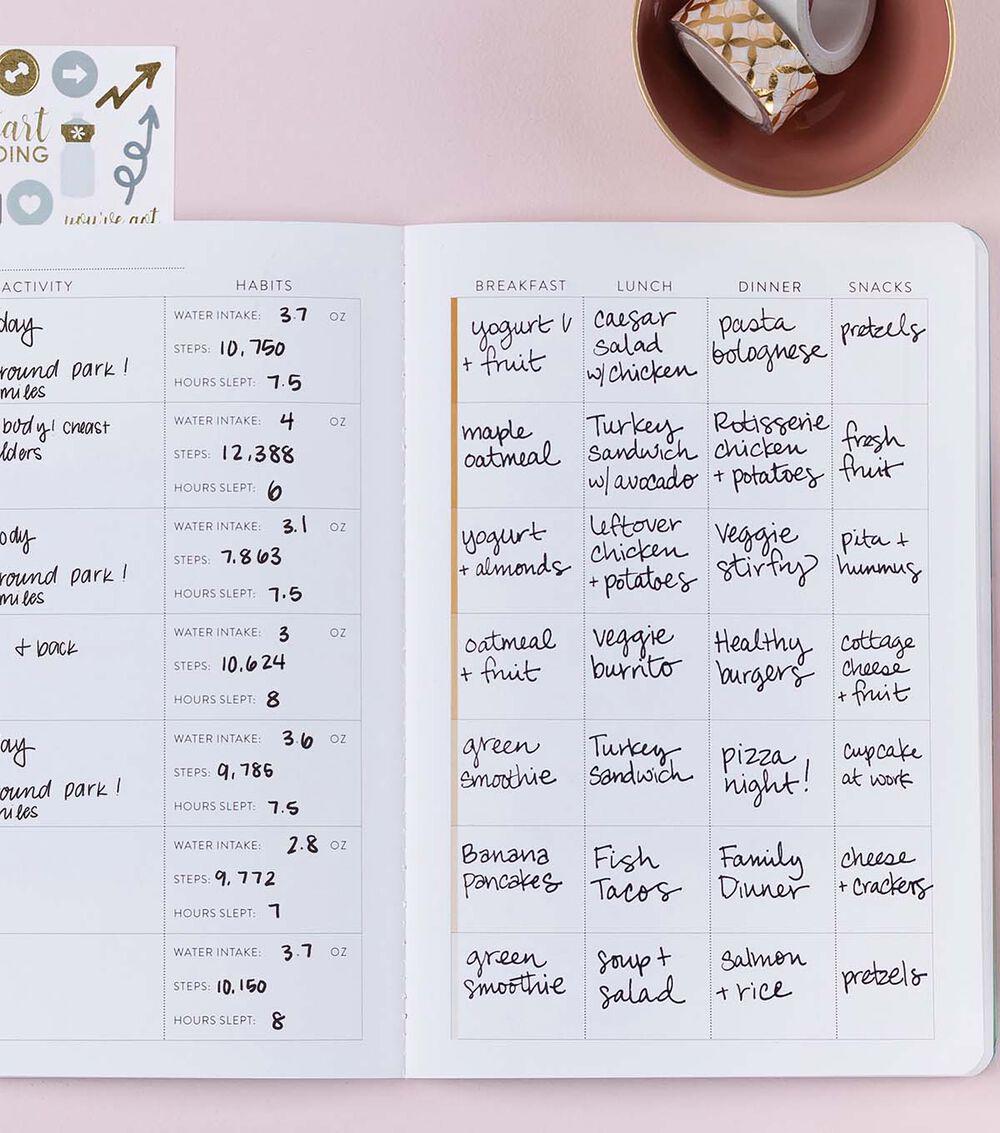 art
DING
you've got
ACTIVITY HABITS
day
round park!
miles
WATER INTAKE: 3.7 OZ
STEPS: 10,750
HOURS SLEPT: 7.5
body! cheast
lders
WATER INTAKE: 4 OZ
STEPS: 12,388
HOURS SLEPT: 6
ody
round park!
miles
WATER INTAKE: 3.1 OZ
STEPS: 7.863
HOURS SLEPT: 7.5
+ back
WATER INTAKE: 3 OZ
STEPS: 10,624
HOURS SLEPT: 8
ay
ound park!
miles
WATER INTAKE: 3.6 OZ
STEPS: 9,785
HOURS SLEPT: 7.5
WATER INTAKE: 2.8 OZ
STEPS: 9,772
HOURS SLEPT: 7
WATER INTAKE: 3.7 OZ
STEPS: 10,150
HOURS SLEPT: 8
BREAKFAST LUNCH DINNER SNACKS
yogurt
+ fruit
caesar
salad
w/chicken
pasta
bolognese
pretzels
maple
oatmeal
Turkey
Sandwich
w/ avocado
Rotisserie
chicken
+ potatoes
fresh
fruit
yogurt
+ almonds
leftover
chicken
+ potatoes
veggie
stirfry
pita +
hummus
oatmeal
+ fruit
veggie
burrito
Healthy
burgers
cottage
cheese
+ fruit
green
smoothie
Turkey
Sandwich
pizza
night!
cupcake
at work
Banana
pancakes
Fish
Tacos
Family
Dinner
cheese
+ crackers
green
smoothie
soup +
salad
salmon
+ rice
pretzels